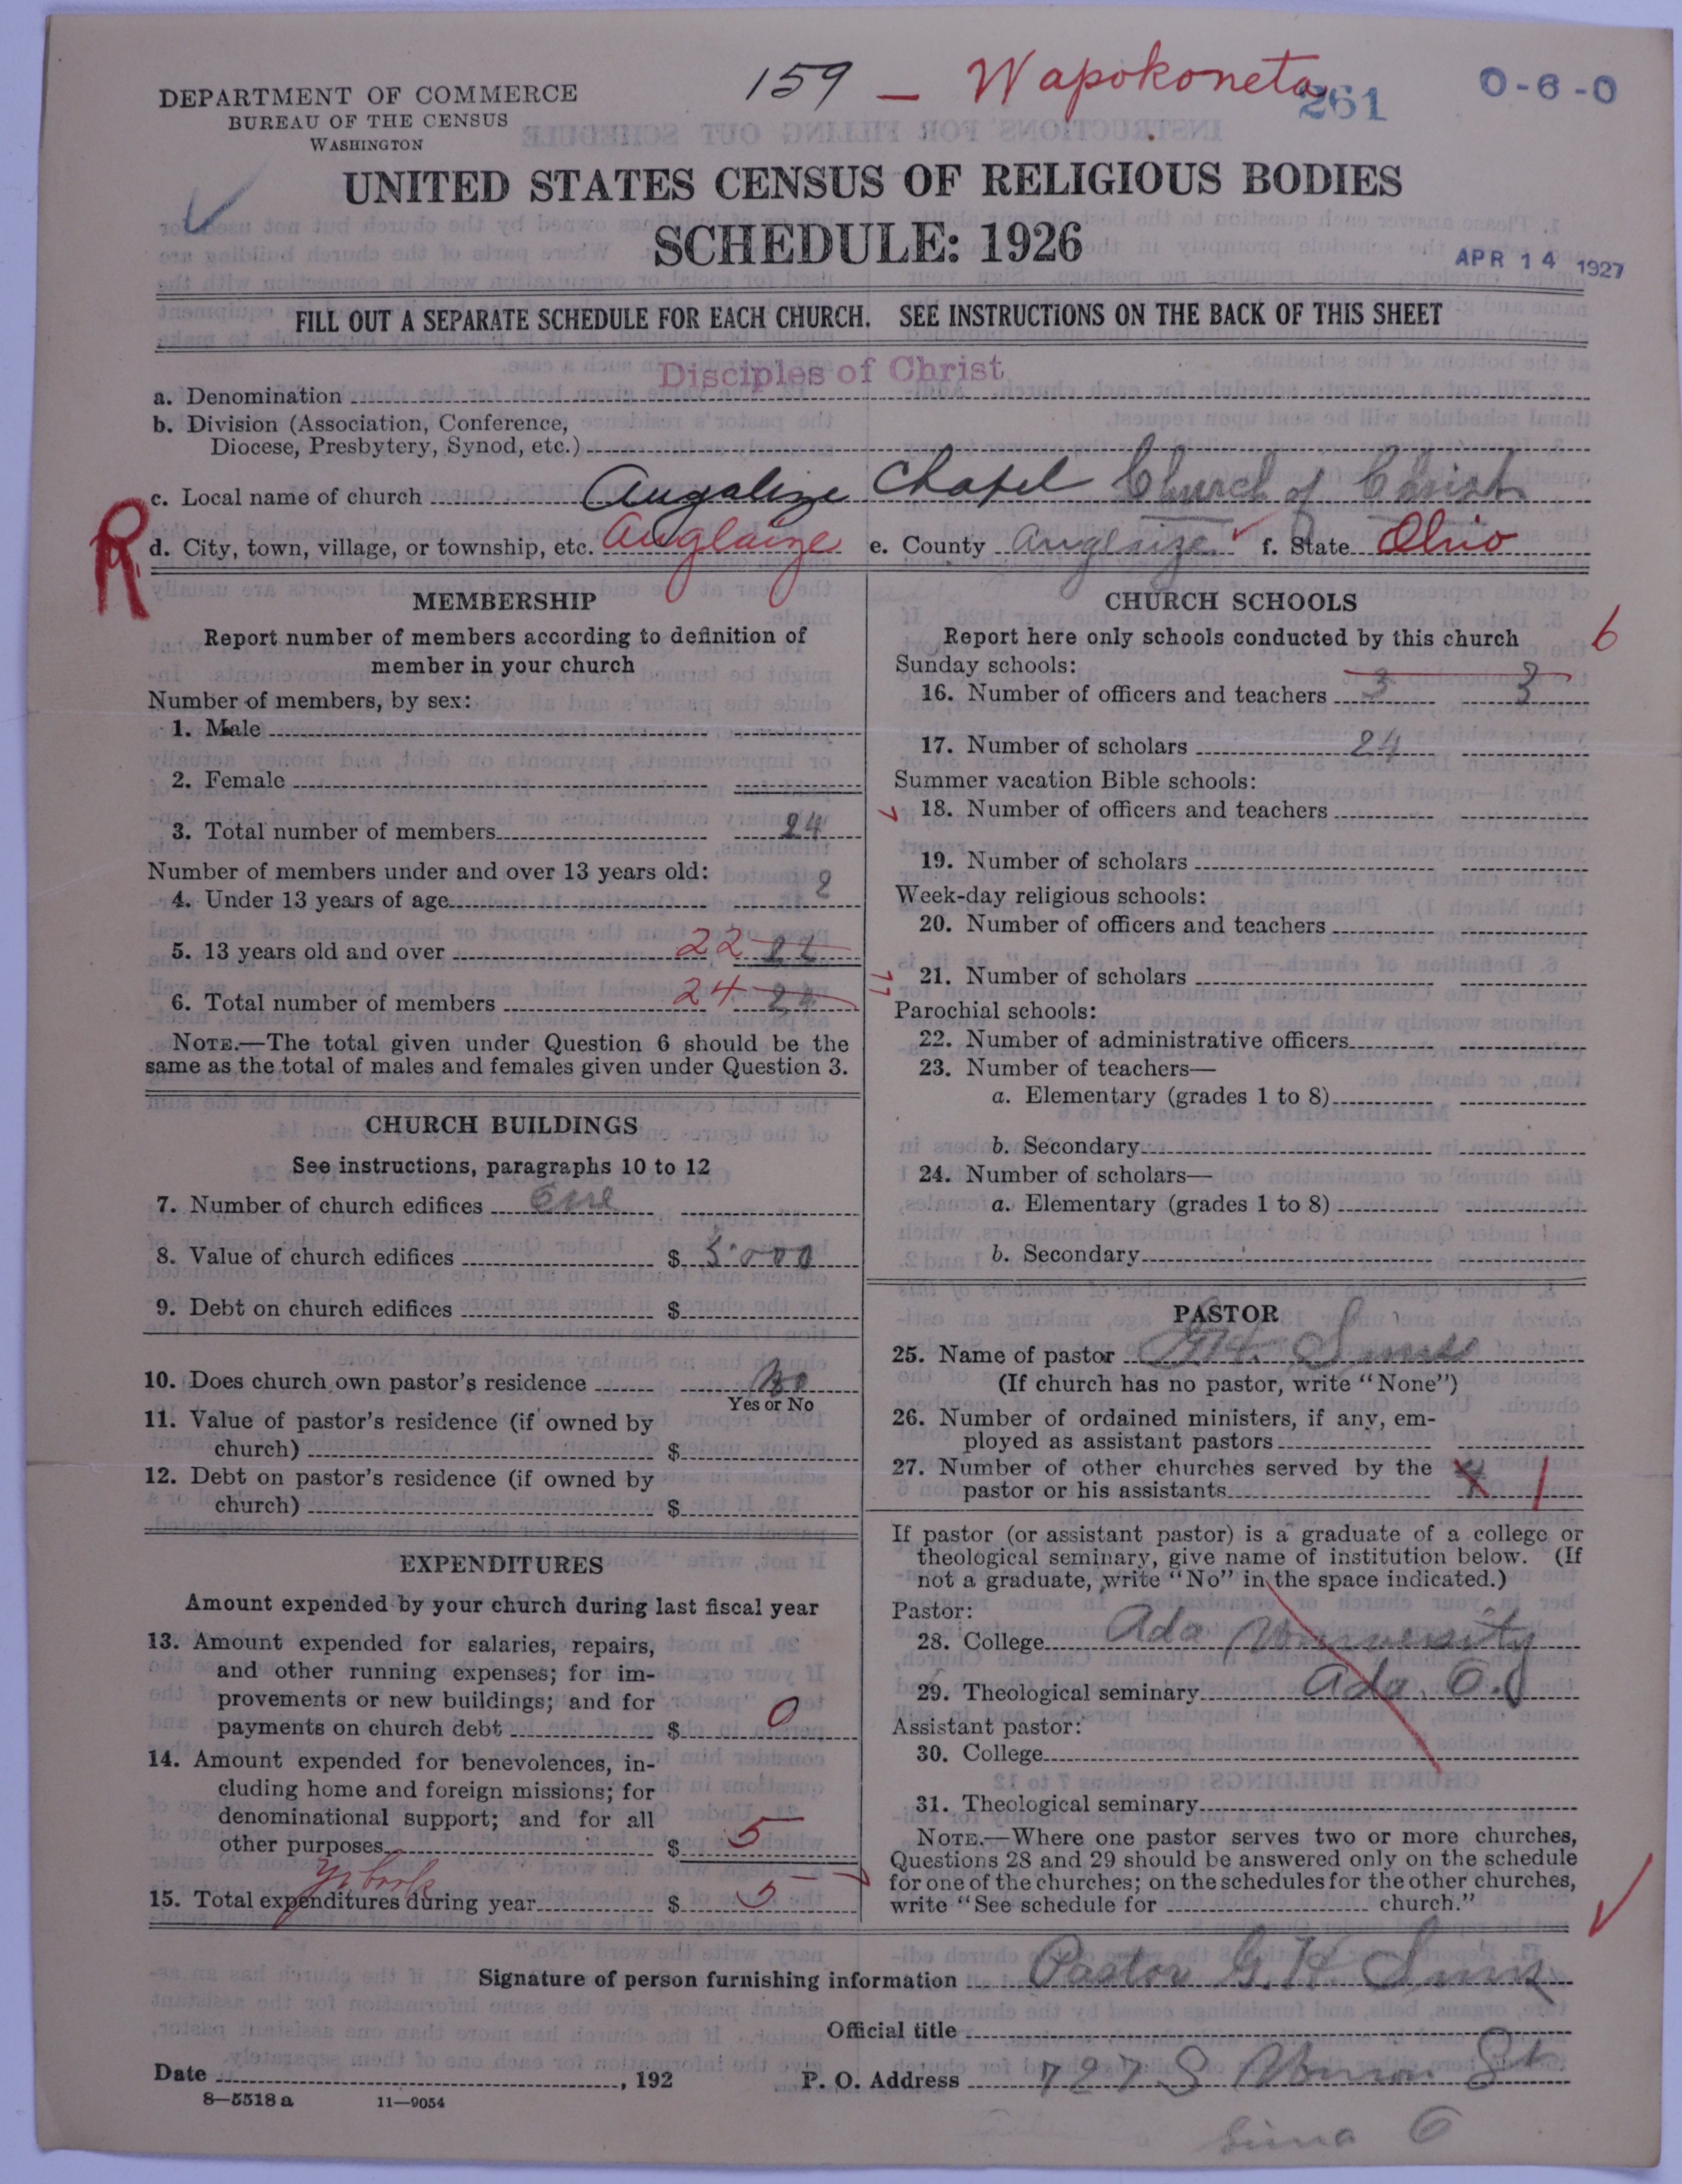 159 — Wapokoneta 261 0-6-0
DEPARTMENT OF COMMERCE
BUREAU OF THE CENSUS
WASHINGTON
UNITED STATES CENSUS OF RELIGIOUS BODIES
SCHEDULE: 1926
APR 14 1927
FILL OUT A SEPARATE SCHEDULE FOR EACH CHURCH. SEE INSTRUCTIONS ON THE BACK OF THIS SHEET
a. Denomination Disciples of Christ
b. Division (Association, Conference,
Diocese, Presbytery, Synod, etc.)
c. Local name of church Augalize Chapel Church of Christ
R d. City, town, village, or township, etc. Auglaize e. County Anglaize f. State Ohio
MEMBERSHIP
Report number of members according to definition of
member in your church
Number of members, by sex:
1. Male
2. Female
3. Total number of members 24
Number of members under and over 13 years old:
4. Under 13 years of age 2
5. 13 years old and over 22 22
6. Total number of members 24 24
NOTE.—The total given under Question 6 should be the
same as the total of males and females given under Question 3.
CHURCH BUILDINGS
See instructions, paragraphs 10 to 12
7. Number of church edifices One
8. Value of church edifices $ 5000
9. Debt on church edifices $
10. Does church own pastor's residence No
Yes or No
11. Value of pastor's residence (if owned by
church) $
12. Debt on pastor's residence (if owned by
church) $
EXPENDITURES
Amount expended by your church during last fiscal year
13. Amount expended for salaries, repairs,
and other running expenses; for im-
provements or new buildings; and for
payments on church debt $ 0
14. Amount expended for benevolences, in-
cluding home and foreign missions; for
denominational support; and for all
other purposes $ 5
Yr book
15. Total expenditures during year $ 5
CHURCH SCHOOLS
Report here only schools conducted by this church 6
Sunday schools:
16. Number of officers and teachers 3 3
17. Number of scholars 24
Summer vacation Bible schools:
18. Number of officers and teachers
19. Number of scholars
Week-day religious schools:
20. Number of officers and teachers
21. Number of scholars
Parochial schools:
22. Number of administrative officers
23. Number of teachers—
a. Elementary (grades 1 to 8)
b. Secondary
24. Number of scholars—
a. Elementary (grades 1 to 8)
b. Secondary
PASTOR
25. Name of pastor G.H. Sims
(If church has no pastor, write "None")
26. Number of ordained ministers, if any, em-
ployed as assistant pastors
27. Number of other churches served by the
pastor or his assistants 1
If pastor (or assistant pastor) is a graduate of a college or
theological seminary, give name of institution below. (If
not a graduate, write "No" in the space indicated.)
Pastor:
28. College Ada University
29. Theological seminary Ada. O.
Assistant pastor:
30. College
31. Theological seminary
NOTE.—Where one pastor serves two or more churches,
Questions 28 and 29 should be answered only on the schedule
for one of the churches; on the schedules for the other churches,
write "See schedule for church."
Signature of person furnishing information Pastor G.H. Sims
Official title
Date , 192 P. O. Address 727 S Union St
8—5518 a 11—9054
Lima O